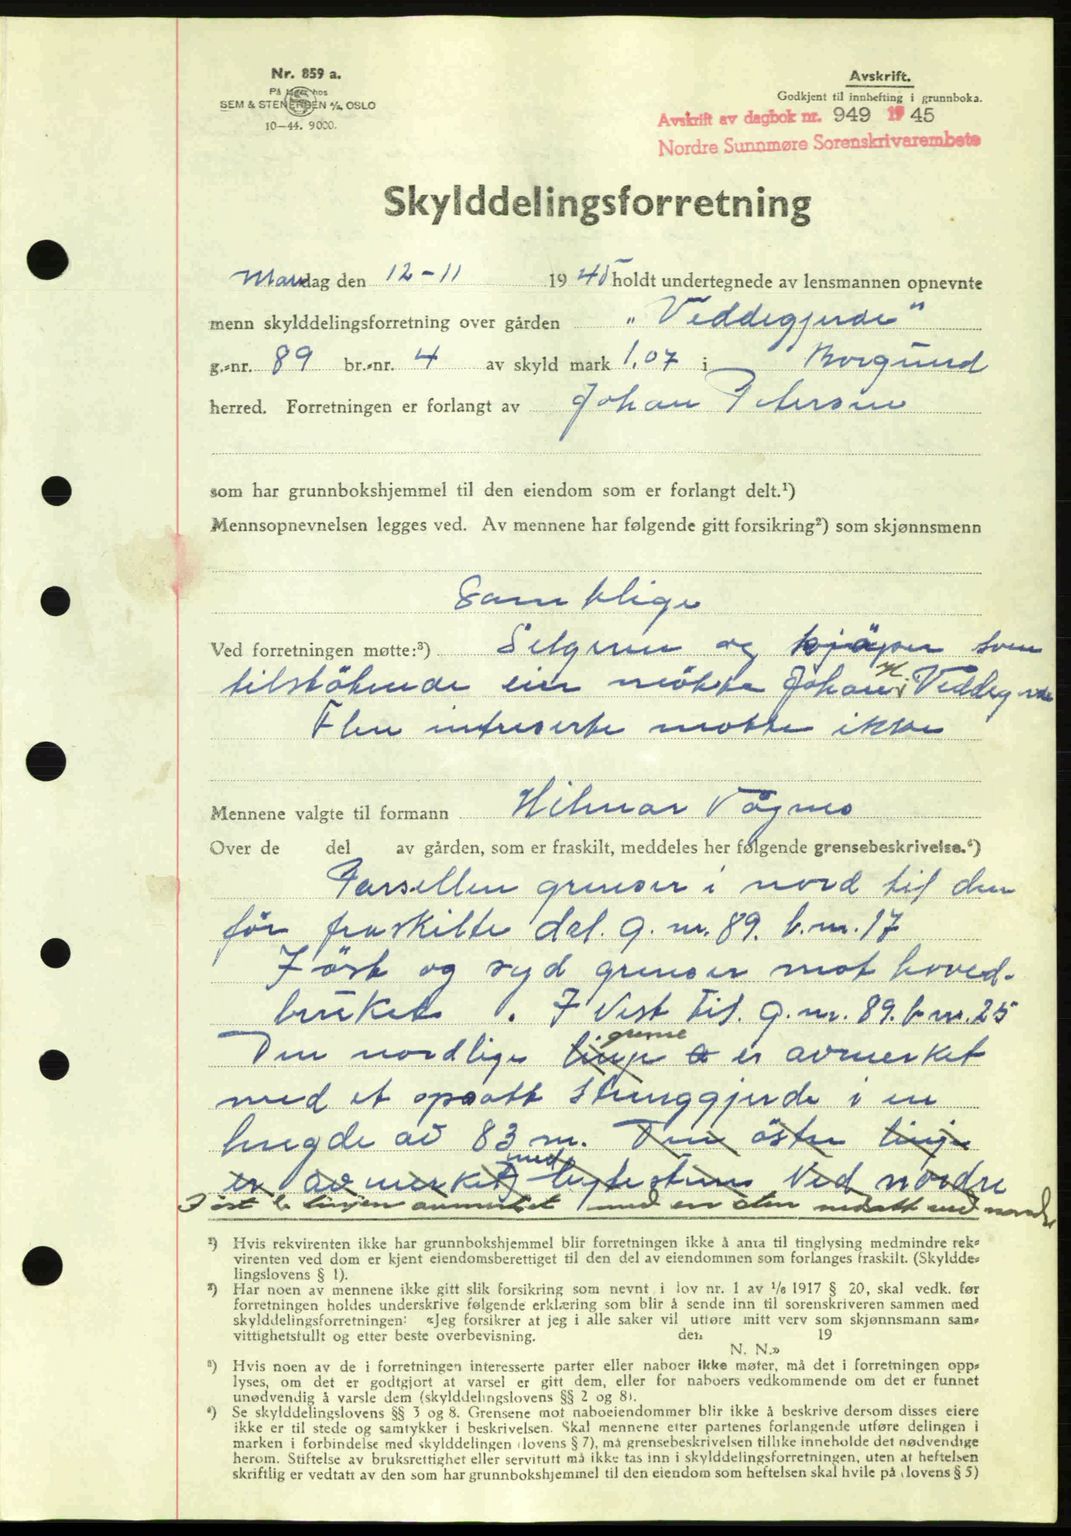 Nr. 859 a.
På lager hos
SEM & STENERSEN A/S, OSLO
10-44. 9000.
Avskrift.
Godkjent til innhefting i grunnboka.
Avskrift av dagbok nr. 949 19 45
Nordre Sunnmøre Sorenskrivarembete
Skylddelingsforretning
Mandag den 12-11 1945 holdt undertegnede av lensmannen opnevnte
menn skylddelingsforretning over gården "Veddegjerde"
g.-nr. 89 br.-nr. 4 av skyld mark 1,07 i Borgund
herred. Forretningen er forlangt av Johan Petersen
som har grunnbokshjemmel til den eiendom som er forlangt delt.¹)
Mennsopnevnelsen legges ved. Av mennene har følgende gitt forsikring²) som skjønnsmenn
Samtlige
Ved forretningen møtte:³) Selgeren og kjøper som
tilstötende eier mötte Johan Veddegjerde
Flere interserte møtte ikke
Mennene valgte til formann Hilmar Vågnes
Over de del av gården, som er fraskilt, meddeles her følgende grensebeskrivelse.⁴)
Parsellen grenser i nord til den
för fraskilte del. g. nr. 89. b.nr. 17
I öst og syd grenser mot hoved-
bruket. I Vest til. g.nr. 89. b.nr. 25
grense
Den nordlige linje er avmerket
med et opsatt strenggjerde i en
lengde av 83 m. Den östre linje
med
er avmerket bytesten ved nordre
I öst er linjen avmerket med en sten nedsatt ved nordre
¹) Hvis rekvirenten ikke har grunnbokshjemmel blir forretningen ikke å anta til tinglysing medmindre rek-
virenten ved dom er kjent eiendomsberettiget til den del av eiendommen som forlanges fraskilt. (Skyldde-
lingslovens § 1).
²) Har noen av mennene ikke gitt slik forsikring som nevnt i lov nr. 1 av 1/6 1917 § 20, skal vedk. før
forretningen holdes underskrive følgende erklæring som blir å sende inn til sorenskriveren sammen med
skylddelingsforretningen: «Jeg forsikrer at jeg i alle saker vil utføre mitt verv som skjønnsmann sam-
vittighetsfullt og etter beste overbevisning. den 19
N. N.»
³) Hvis noen av de i forretningen interesserte parter eller naboer ikke møter, må det i forretningen opp-
lyses, om det er godtgjort at varsel er gitt dem, eller for naboers vedkommende om det er funnet
unødvendig å varsle dem (skylddelingslovens §§ 2 og 8).
⁴) Se skylddelingslovens §§ 3 og 8. Grensene mot naboeiendommer blir ikke å beskrive dersom disses eiere
ikke er til stede og samtykker i beskrivelsen. Skal mennene etter partenes forlangende utføre delingen i
marken i forbindelse med skylddelingen (lovens § 7), må grensebeskrivelsen tillike inneholde det nødvendige
herom. Stiftelse av bruksrettighet eller servitutt må ikke tas inn i skylddelingsforretningen, uten at heftelsen
skriftlig er vedtatt av den som har grunnbokshjemmel til den eiendom som heftelsen skal hvile på (lovens § 5)